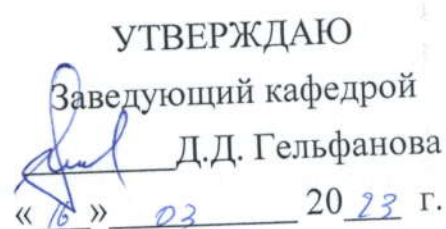 УТВЕРЖДАЮ
Заведующий кафедрой
Д.Д. Гельфанова
«16» 03 2023 г.